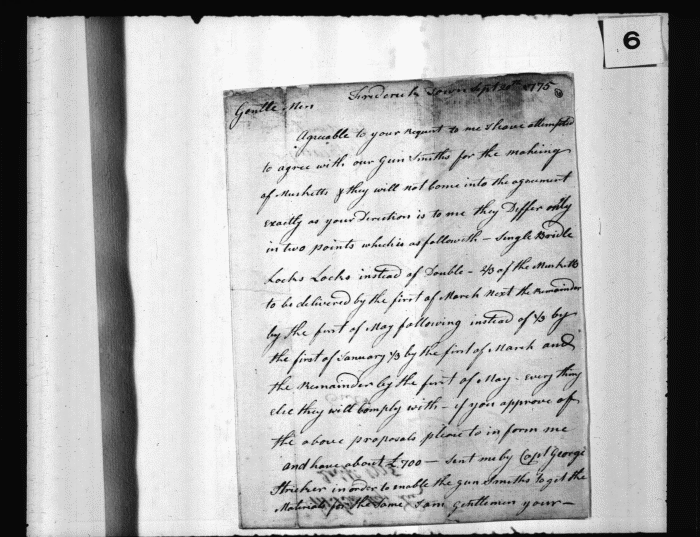 6
Frederick Town Sept 20th 1775
Gentle Men
Agreeable to your Request to me I have attempted
to agree with our Gun Smiths for the making
of Musketts & they will not Come into the agreement
exactly as your Direction is to me they Differ only
in two points which is as followith - Single Bridle
Locks Locks instead of Double - 2/3 of the Musketts
to be delivered by the first of March Next the Remainder
by the first of May following instead of 1/3 by
the first of January 1/3 by the first of March and
the Remainder by the first of May - Every thing
else they will Comply with - if you approve of
the above proposals please to inform me
and have about £700 - Sent me by Capt George
Stricker in order to enable the Gun Smiths to git the
Materials for the Same I am Gentlemen your -